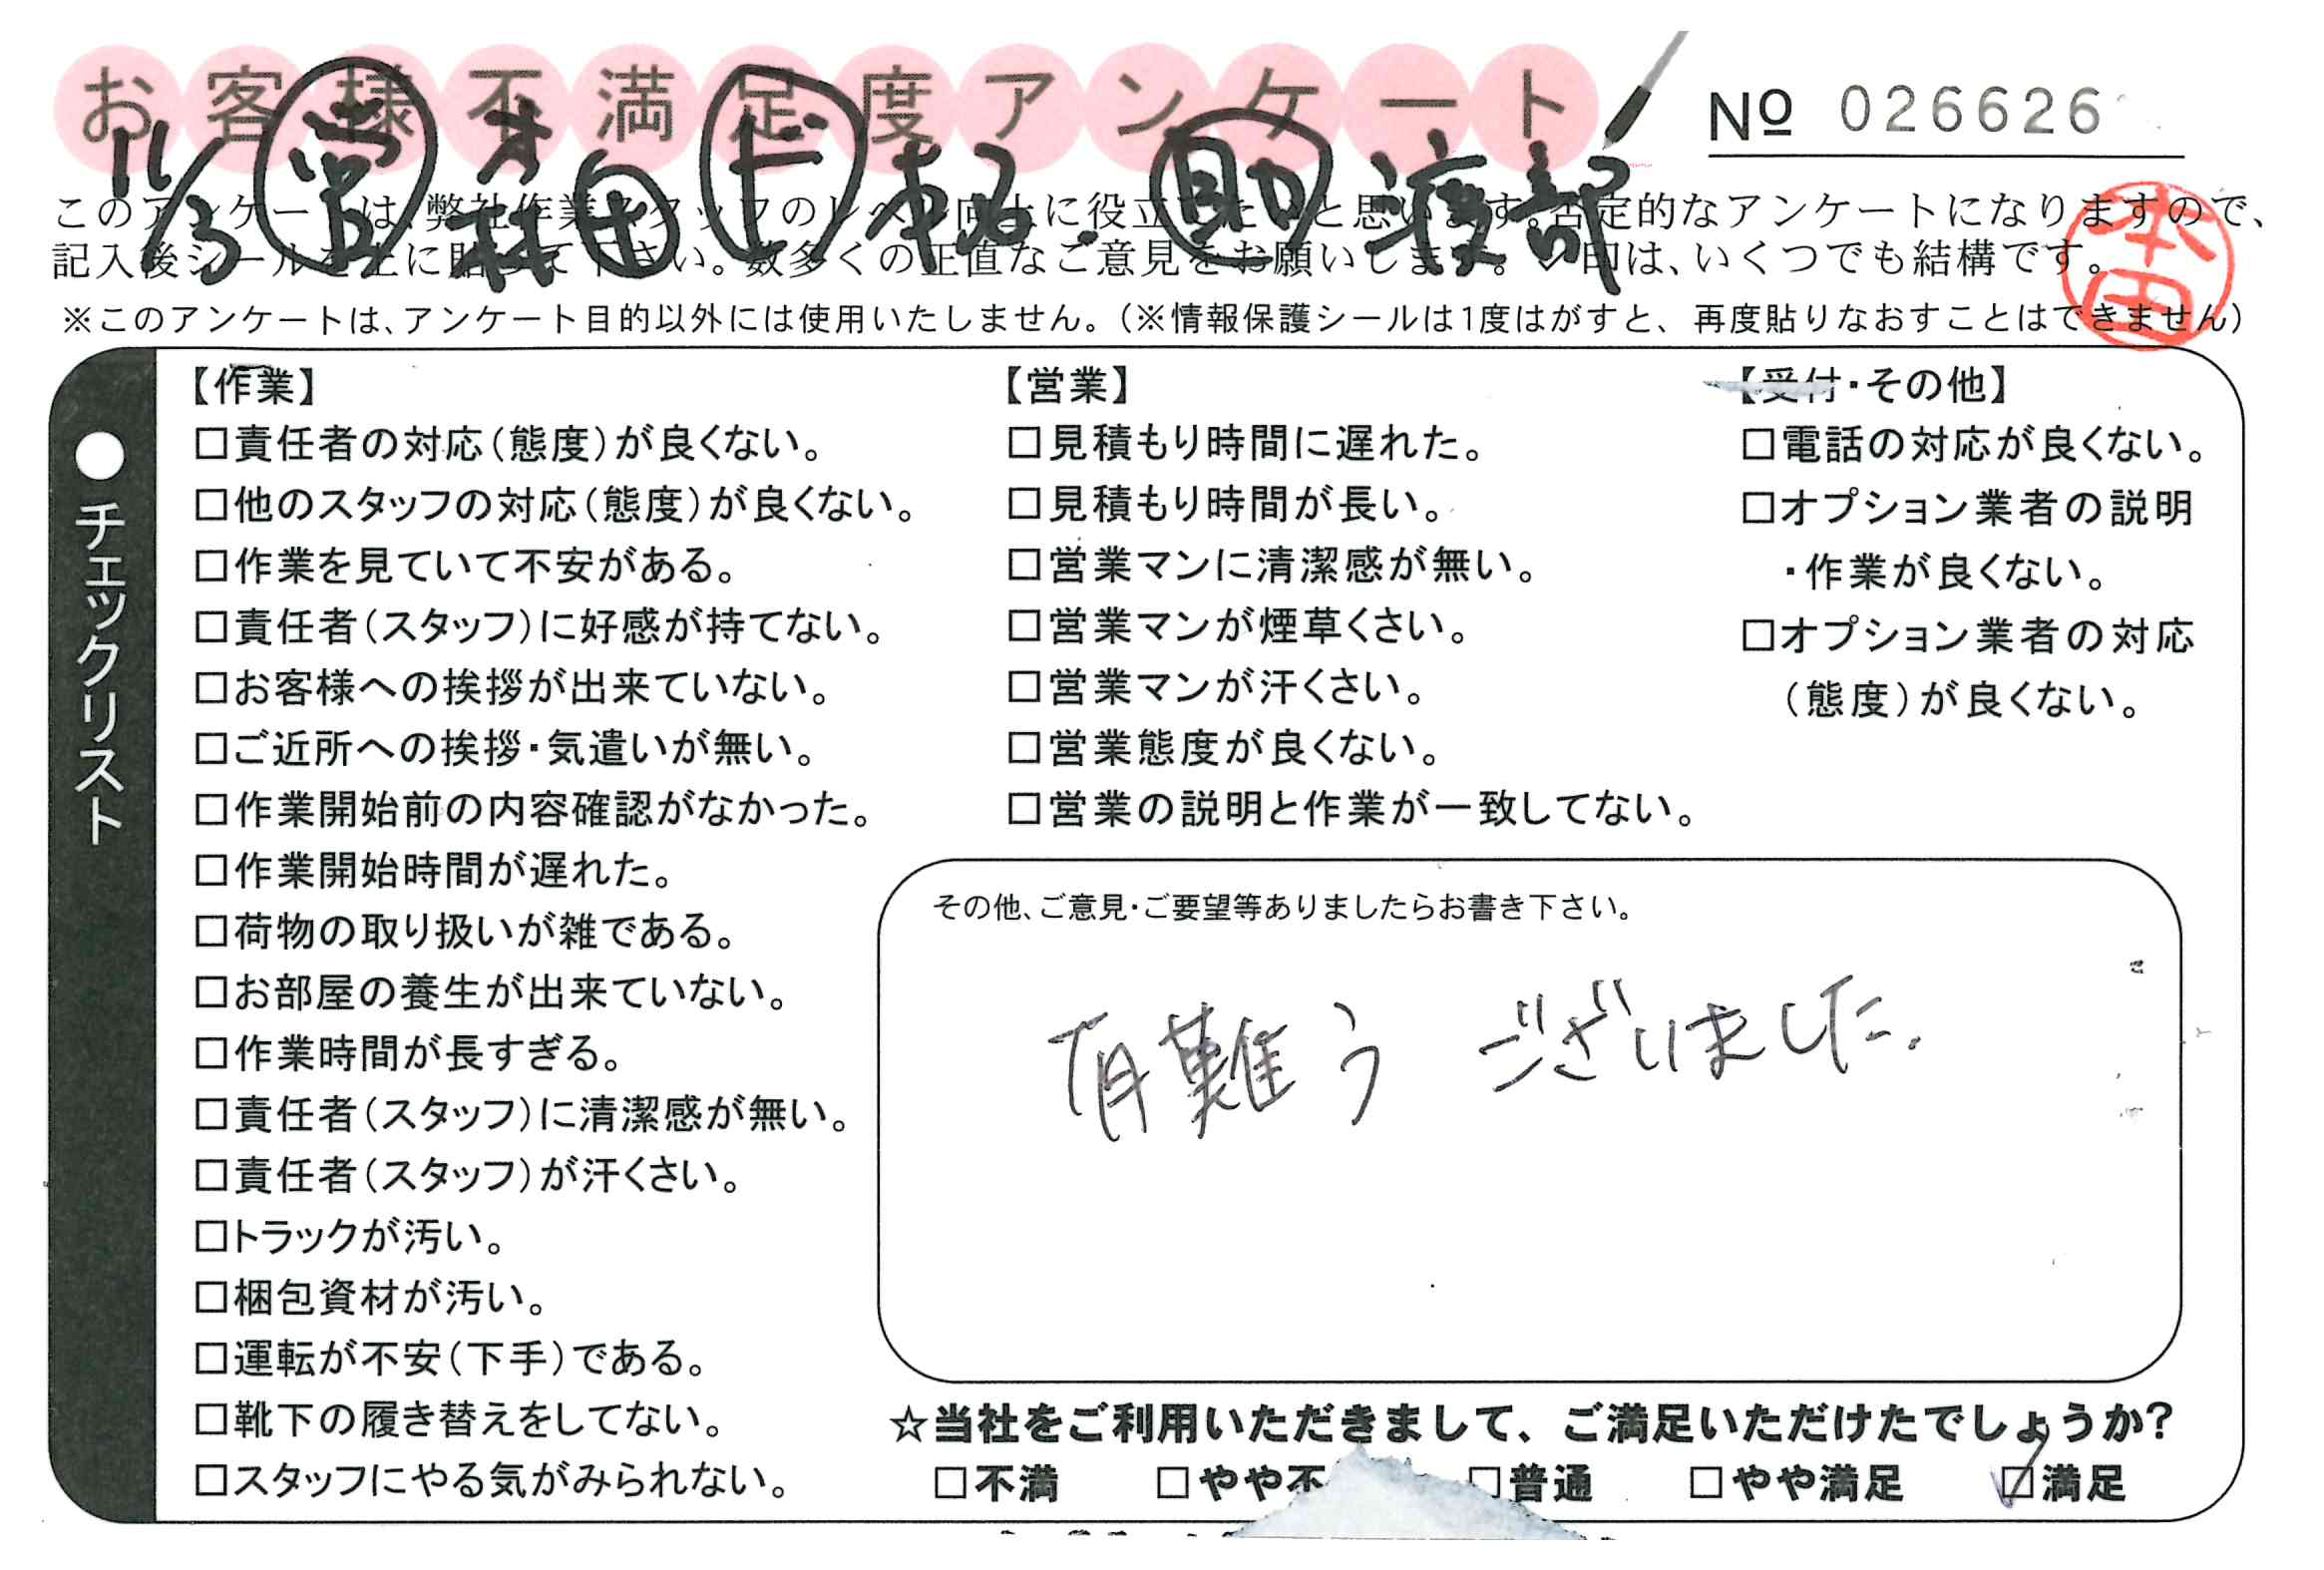 お客様不満足度アンケート
№ 026626
11/3 営 ド 助 渡部
本田
このアンケートは、弊社作業スタッフのレベル向上に役立てたいと思います。否定的なアンケートになりますので、
記入後シールを上に貼って下さい。数多くの正直なご意見をお願いします。✓印は、いくつでも結構です。
※このアンケートは、アンケート目的以外には使用いたしません。(※情報保護シールは1度はがすと、再度貼りなおすことはできません)
●チェックリスト
【作業】
□責任者の対応(態度)が良くない。
□他のスタッフの対応(態度)が良くない。
□作業を見ていて不安がある。
□責任者(スタッフ)に好感が持てない。
□お客様への挨拶が出来ていない。
□ご近所への挨拶・気遣いが無い。
□作業開始前の内容確認がなかった。
□作業開始時間が遅れた。
□荷物の取り扱いが雑である。
□お部屋の養生が出来ていない。
□作業時間が長すぎる。
□責任者(スタッフ)に清潔感が無い。
□責任者(スタッフ)が汗くさい。
□トラックが汚い。
□梱包資材が汚い。
□運転が不安(下手)である。
□靴下の履き替えをしてない。
□スタッフにやる気がみられない。
【営業】
□見積もり時間に遅れた。
□見積もり時間が長い。
□営業マンに清潔感が無い。
□営業マンが煙草くさい。
□営業マンが汗くさい。
□営業態度が良くない。
□営業の説明と作業が一致してない。
【受付・その他】
□電話の対応が良くない。
□オプション業者の説明
・作業が良くない。
□オプション業者の対応
(態度)が良くない。
その他、ご意見・ご要望等ありましたらお書き下さい。
有難う ございました.
☆当社をご利用いただきまして、ご満足いただけたでしょうか?
□不満 □やや不 □普通 □やや満足 ☑満足